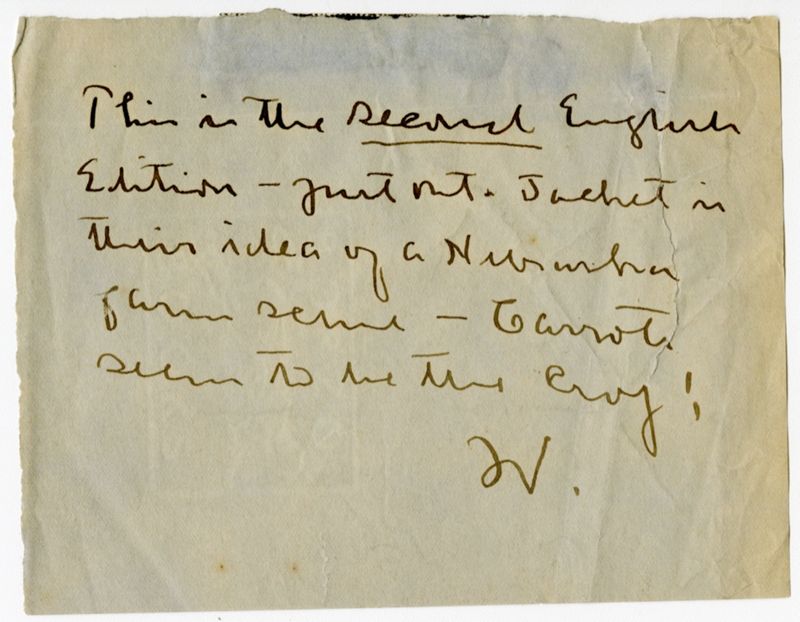 This is the second English
Edition – just out. Jacket is
their idea of a Nebraska
farm scene – Carrots
seem to be the crop!
W.